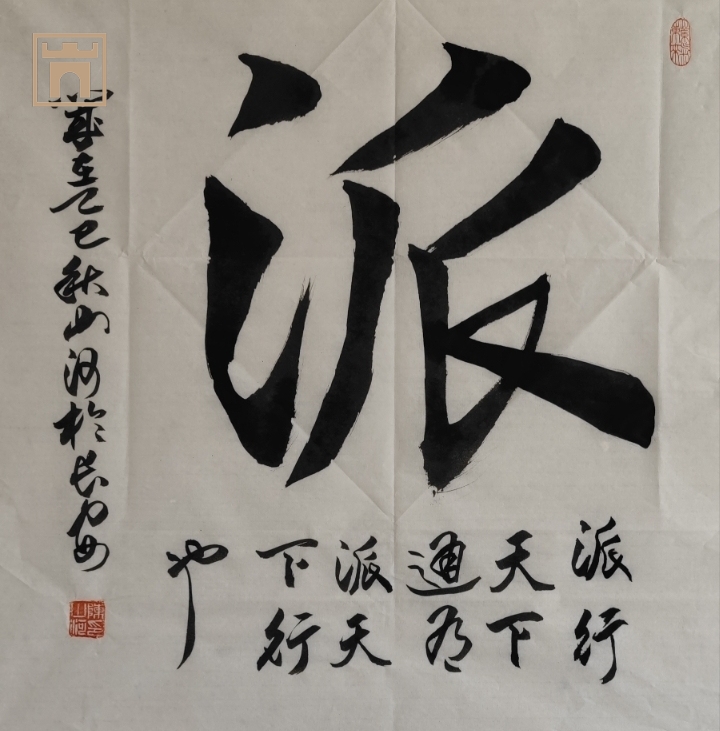 派
派行
天下
通为
派天
下行
也
歲在乙巳秋山河於长安